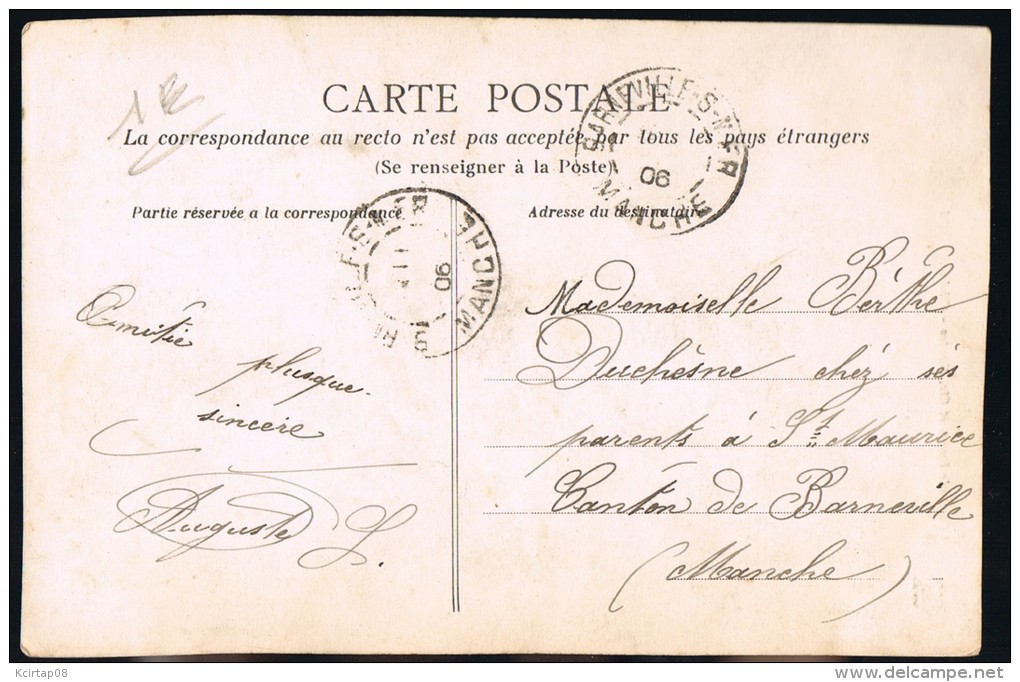 CARTE POSTALE
La correspondance au recto n'est pas acceptée par tous les pays étrangers
(Se renseigner à la Poste)
Partie réservée a la correspondance
Adresse du destinataire
BARNEVILLE-S-MER
06
MANCHE
S-MER
06
MANCHE
Amitie
plusque
sincère
Auguste L.
Mademoiselle Bérthe
Duchésne chéz sés
parents á St. Maurice
Canton de Barneville
(Manche)
Kcirtap08
www.delcampe.net